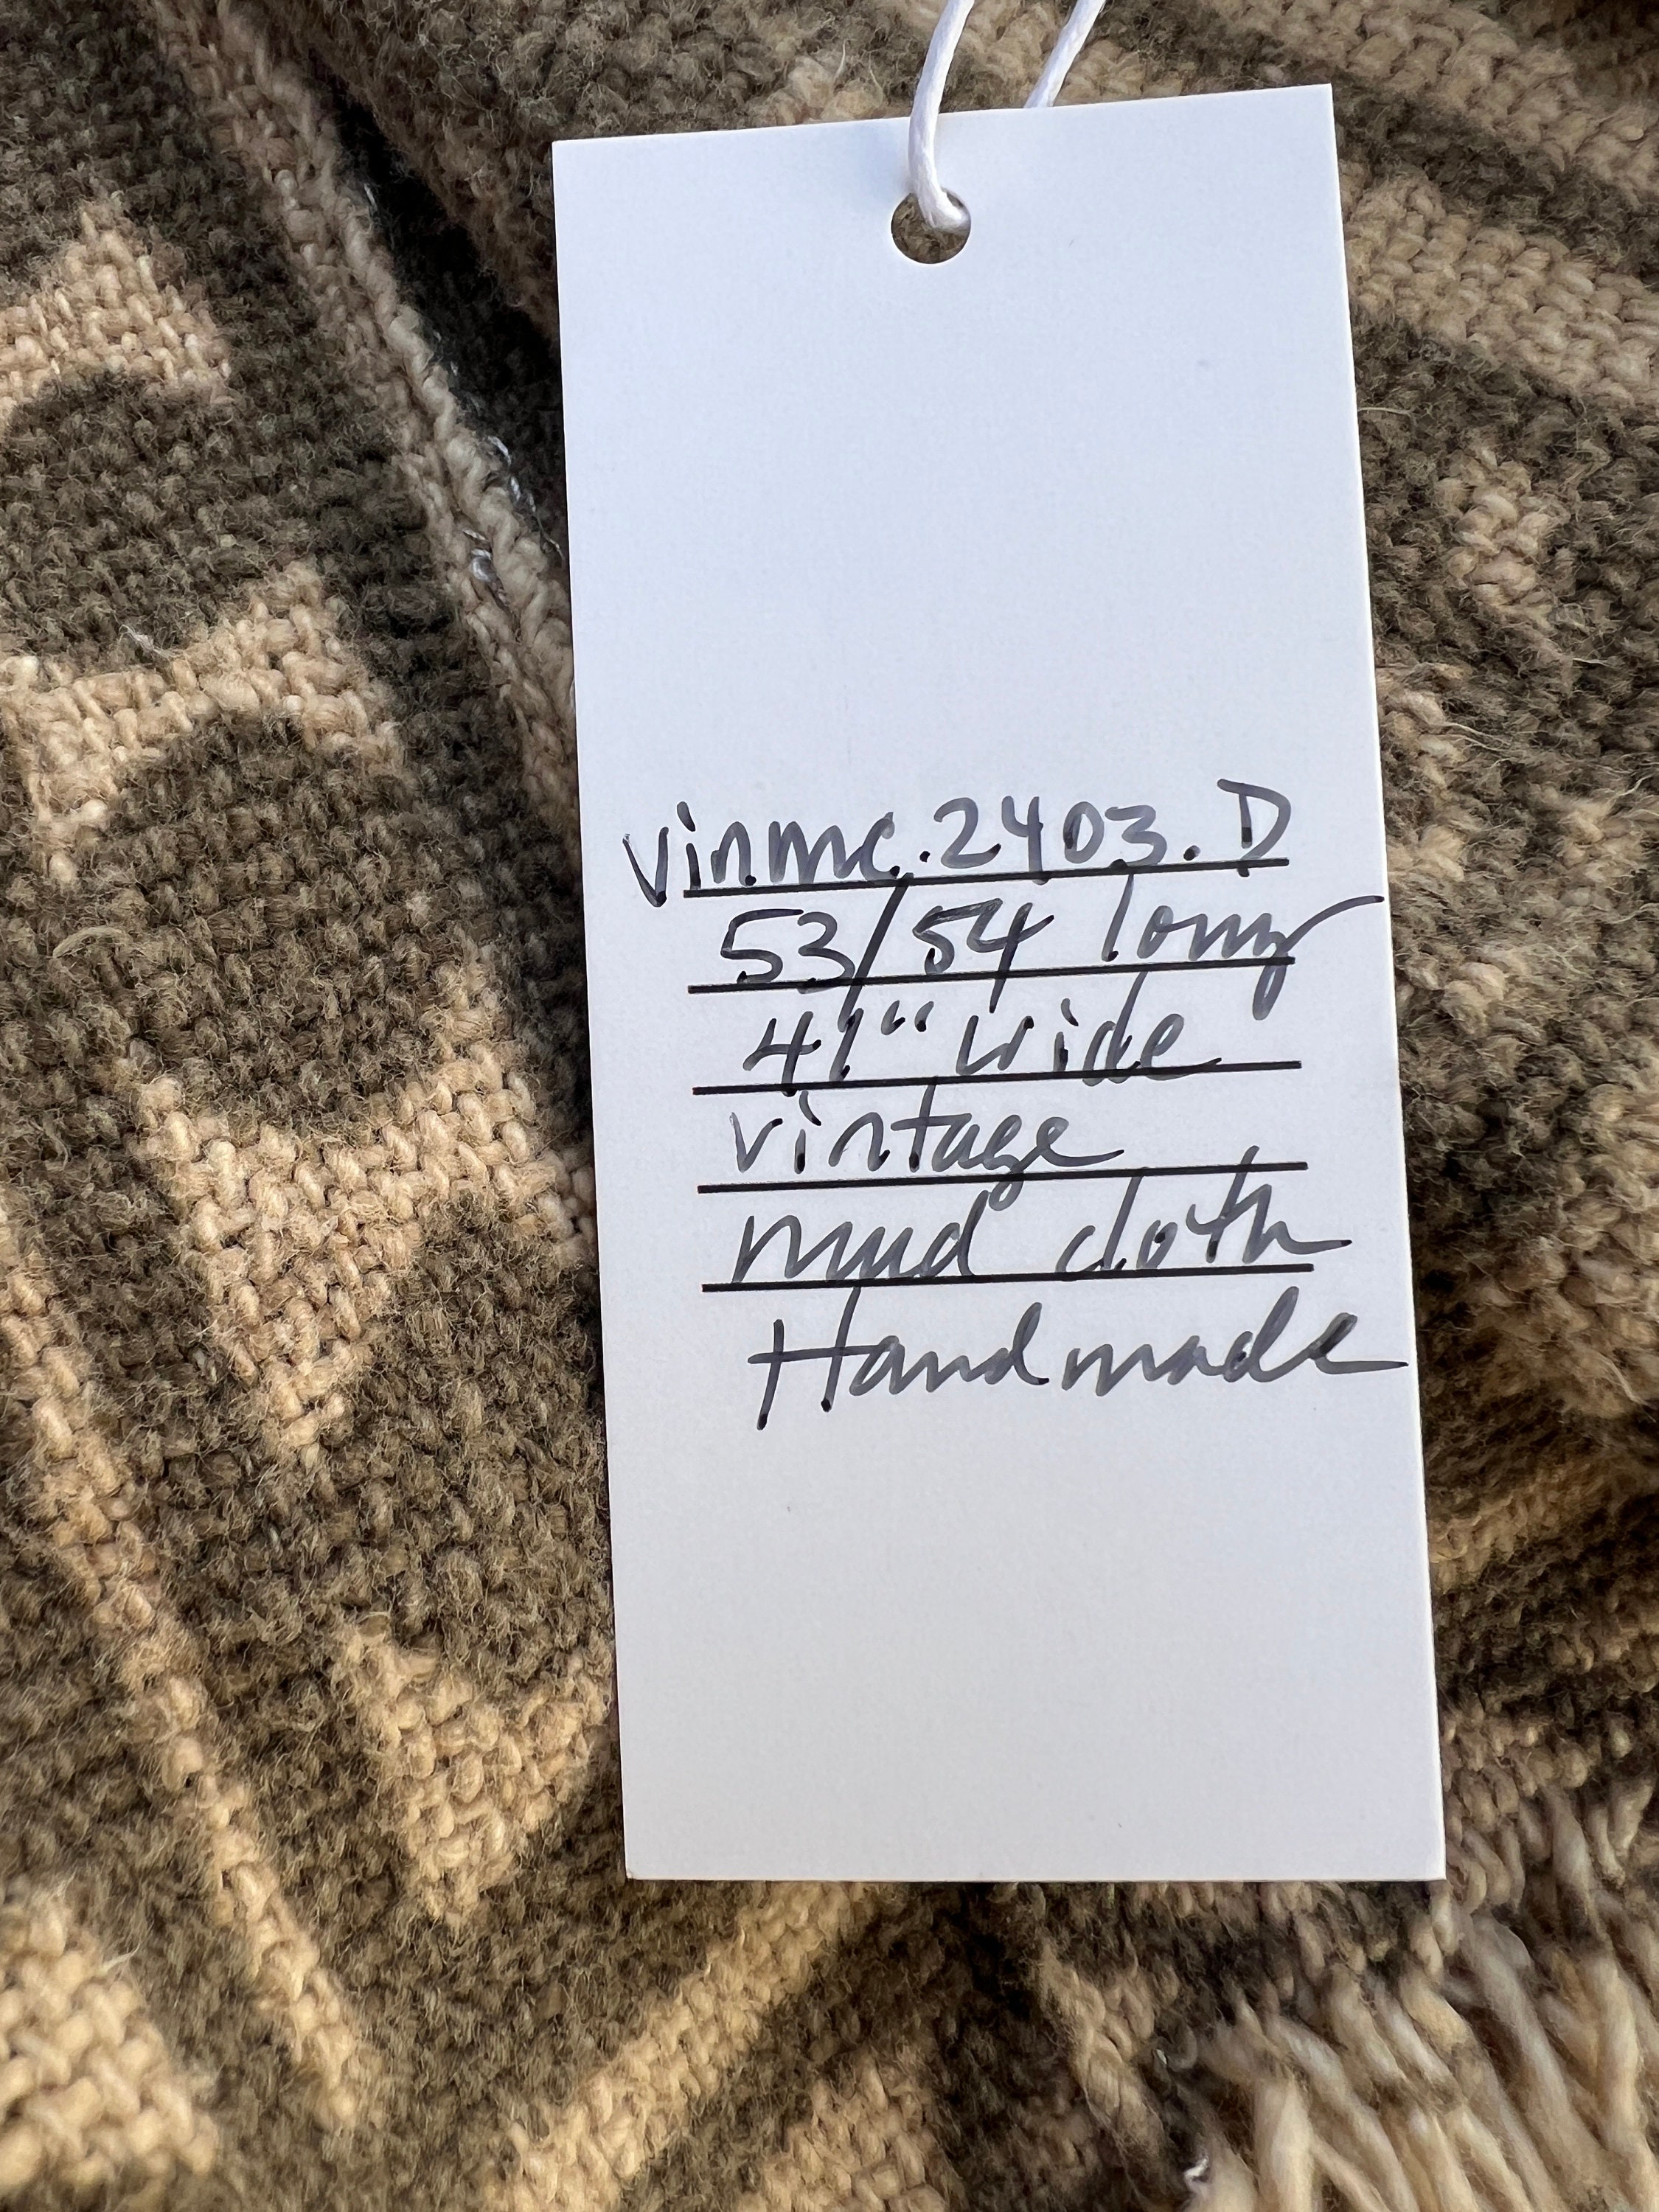 vin.mc.2403.D
53/54 long
41" wide
vintage
mud cloth
Handmade